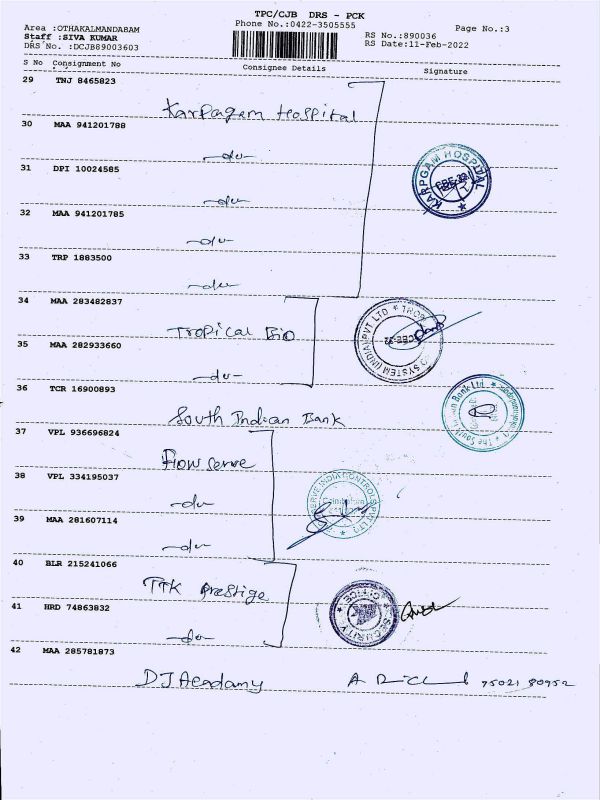 TPC/CJB DRS - PCK
Area :OTHAKALMANDABAM Phone No.:0422-3505555 Page No.:3
Staff :SIVA KUMAR RS No.:890036
DRS No. :DCJB89003603 RS Date:11-Feb-2022
S No Consignment No Consignee Details Signature
29 TNJ 8465823
Karpagam Hospital
30 MAA 941201788
-do-
KARPGAM HOSPITAL
31 DPI 10024585
-do-
32 MAA 941201785
-do-
33 TRP 1883500
-do-
34 MAA 283482837
Tropical Bio
SYSTEM (INDIA) PVT LTD
35 MAA 282933660
-do-
36 TCR 16900893
South Indian Bank
The South Indian Bank Ltd.
37 VPL 936696824
Flow serve
38 VPL 334195037
-do-
INDIA CONTROLS PVT LTD
39 MAA 281607114
-do-
40 BLR 215241066
TTK Prestige
SECURITY OFFICE
41 HRD 74863832
-do-
42 MAA 285781873
DJ Acadamy 75021 80952